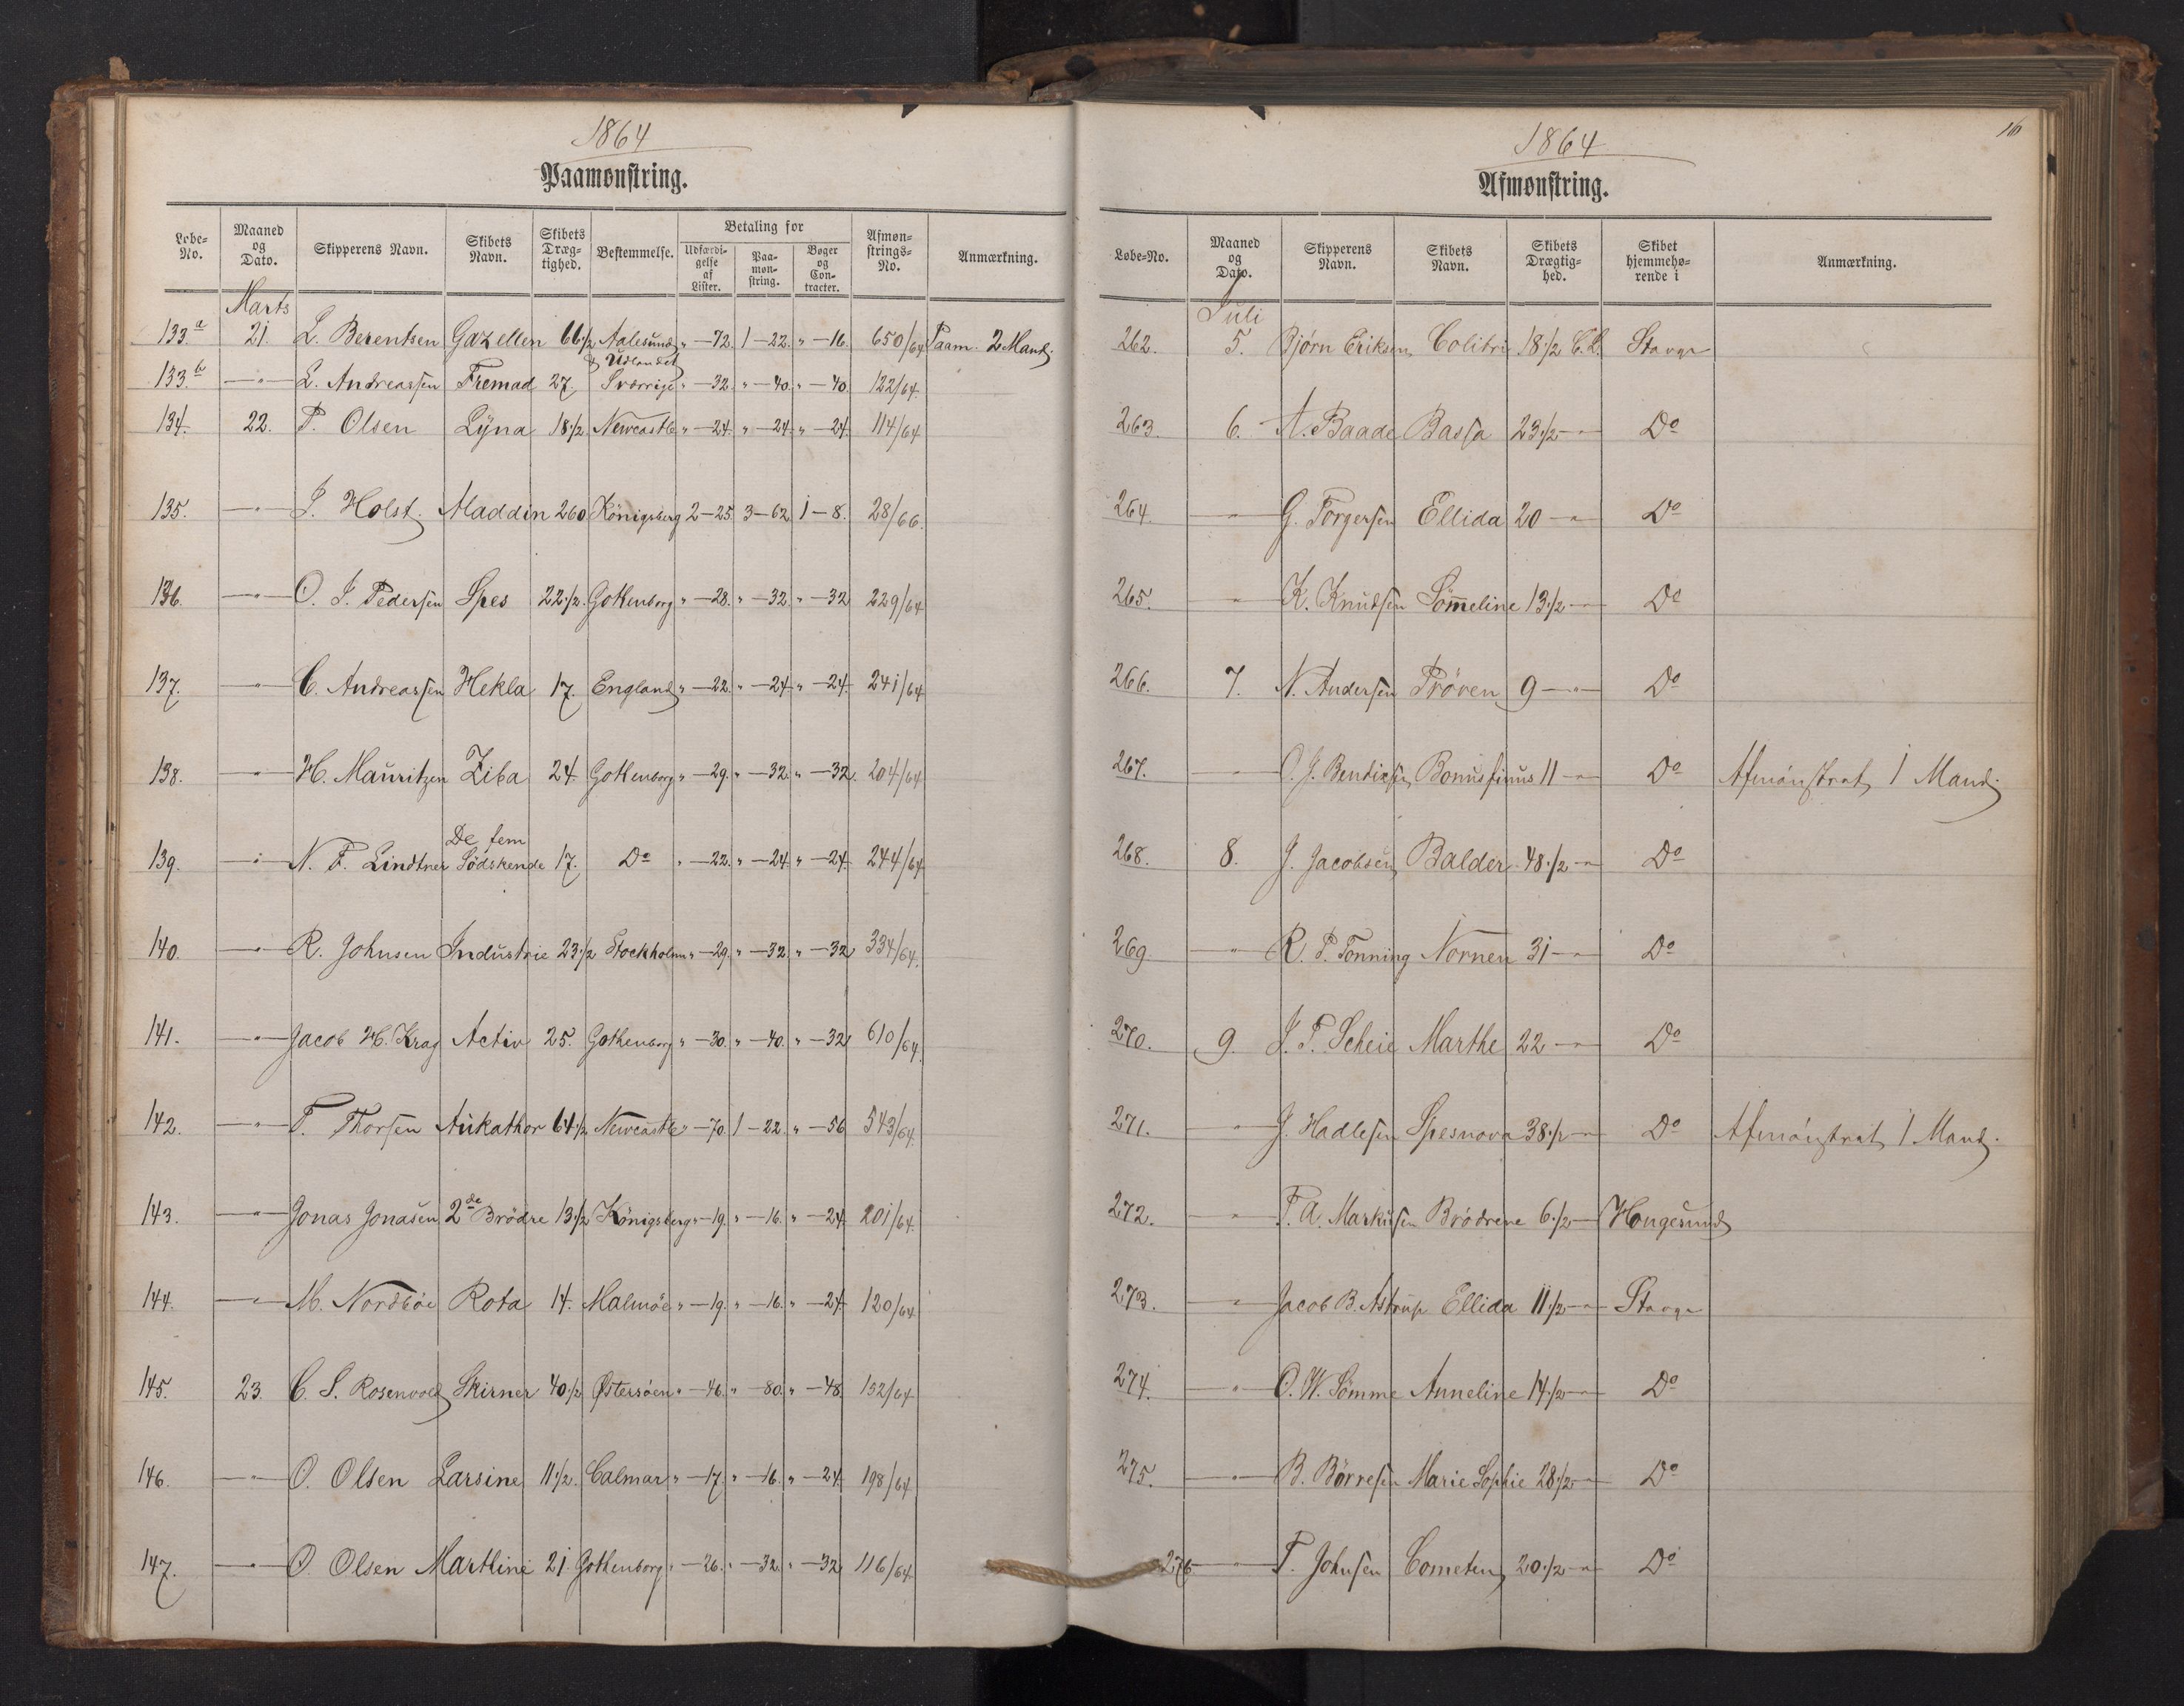 1864
Paamønstring.
Løbe-No. Maaned og Dato. Skipperens Navn. Skibets Navn. Skibets Dræg-tighed. Bestemmelse. Betaling for Udfærdi-gelse af Lister. Paa-møn-string. Bøger og Con-tracter. Afmøn-strings-No. Anmærkning.
Marts
133.a 21. L. Berentsen Gazellen 66 1/2 Aalesund & Udlandet " — 72. 1 — 22. " — 16. 650/64 Paam. 2 Mand.
133.b —"— L. Andreassen Fremad 27 Sverrige " — 32. " — 40. " — 40. 122/64
134. 22. P. Olsen Lyna 18 1/2 Newcastle " — 24. " — 24. " — 24. 114/64
135. —"— J. Holst. Aladdin 260 Königsberg 2 — 25. 3 — 62. 1 — 8. 28/66.
136. —"— O. J. Pedersen Spes 22 1/2. Gothenborg " — 28. " — 32. " — 32 229/64
137. —"— C. Andreassen Hekla 17. England " — 22. " — 24. " — 24. 241/64
138. —"— H. Mauritzen Ziba 24 Gothenborg " — 29. " — 32. " — 32. 204/64
139. —"— N. F. Lindtner De fem Södskende 17. Do " — 22. " — 24. " — 24. 244/64
140. —"— R. Johnsen Industrie 23 1/2 Stockholm " — 29. " — 32. " — 32 334/64.
141. —"— Jacob H. Krag Activ 25. Gothenborg " — 30. " — 40. " — 32 610/64
142. —"— T. Thorsen Aukathor 64 1/2 Newcastle " — 70. 1 — 22. " — 56 543/64.
143. —"— Jonas Jonasen 2de Brödre 13 1/2 Königsberg " — 19. " — 16. " — 24 201/64.
144. —"— M. Nordböe Rota 14. Malmöe " — 19. " — 16. " — 24 120/64
145. 23. C. S. Rosenvold Skirner 40 1/2 Østersöen " — 46. " — 80. " — 48 152/64
146. —"— O. Olsen Larsine 11 1/2. Calmar " — 17. " — 16. " — 24 198/64
147. —"— O. Olsen Marthine 21 Gothenborg " — 26. " — 32. " — 32 116/64.
16
1864
Afmønstring.
Løbe-No. Maaned og Dato. Skipperens Navn. Skibets Navn. Skibets Drægtig-hed. Skibet hjemmehø-rende i Anmærkning.
Juli
262. 5. Bjørn Eriksen Colibri 18 1/2 C.L. Stavgr
263. 6. A. Baade Bassa 23 1/2 —"— Do
264. —"— G. Torgersen Ellida 20 —"— Do
265. —"— K. Knudsen Sömeline 13 1/2 —"— Do
266. 7. N. Andersen Pröven 9 —"— Do
267. —"— O. J. Bendixsen Bonusfinus 11 —"— Do Afmönstrat 1 Mand.
268. 8. J. Jacobsen Balder 48 1/2 —"— Do
269. —"— R. P. Tonning Nornen 31 —"— Do
270. 9. J. P. Scheie Marthe 22 —"— Do
271. —"— J. Hadlesen Spesnova 38 1/2 —"— Do Afmönstrat 1 Mand.
272. —"— T. A. Markusen Brödrene 6 1/2 —"— Hougesund
273. —"— Jacob B. Astrup Ellida 11 1/2 —"— Stavgr
274. —"— O. W. Sömme Anneline 14 1/2 —"— Do
275. —"— B. Börresen Marie Sophie 28 1/2 —"— Do
276 —"— T. Johnsen Cometen 20 1/2 —"— Do